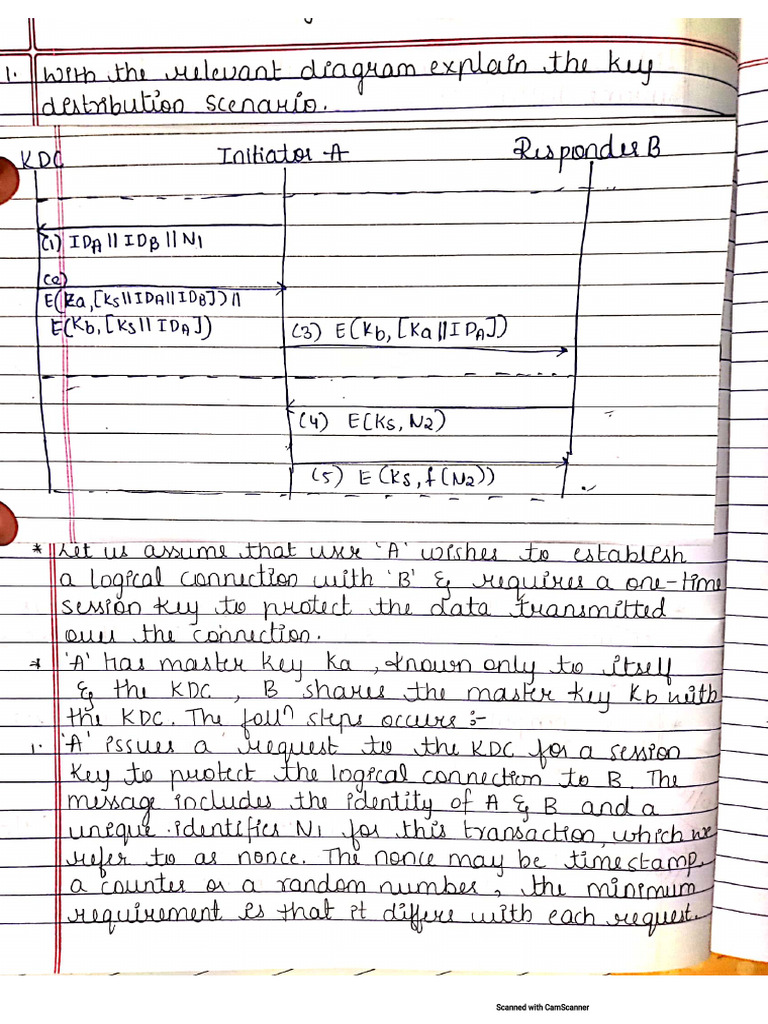 1. With the relevant diagram explain the key
distribution scenario.
KDC Initiator A Responder B
(1) IDA || IDB || N1
(2)
E(Ka, [Ks || IDA || IDB]) ||
E(Kb, [Ks || IDA])
(3) E(Kb, [Ka || IDA])
(4) E(Ks, N2)
(5) E (Ks, f (N2))
* Let us assume that user 'A' wishes to establish
a logical connection with 'B' & requires a one-time
session key to protect the data transmitted
over the connection.
* 'A' has master key Ka, known only to itself
& the KDC, B shares the master key Kb with
the KDC. The follⁿ steps occurs :-
1. 'A' issues a request to the KDC for a session
key to protect the logical connection to B. The
message includes the identity of A & B and a
unique identifies N1 for this transaction, which we
refer to as nonce. The nonce may be timestamp,
a counter or a random number, the minimum
requirement is that it differs with each request.
Scanned with CamScanner